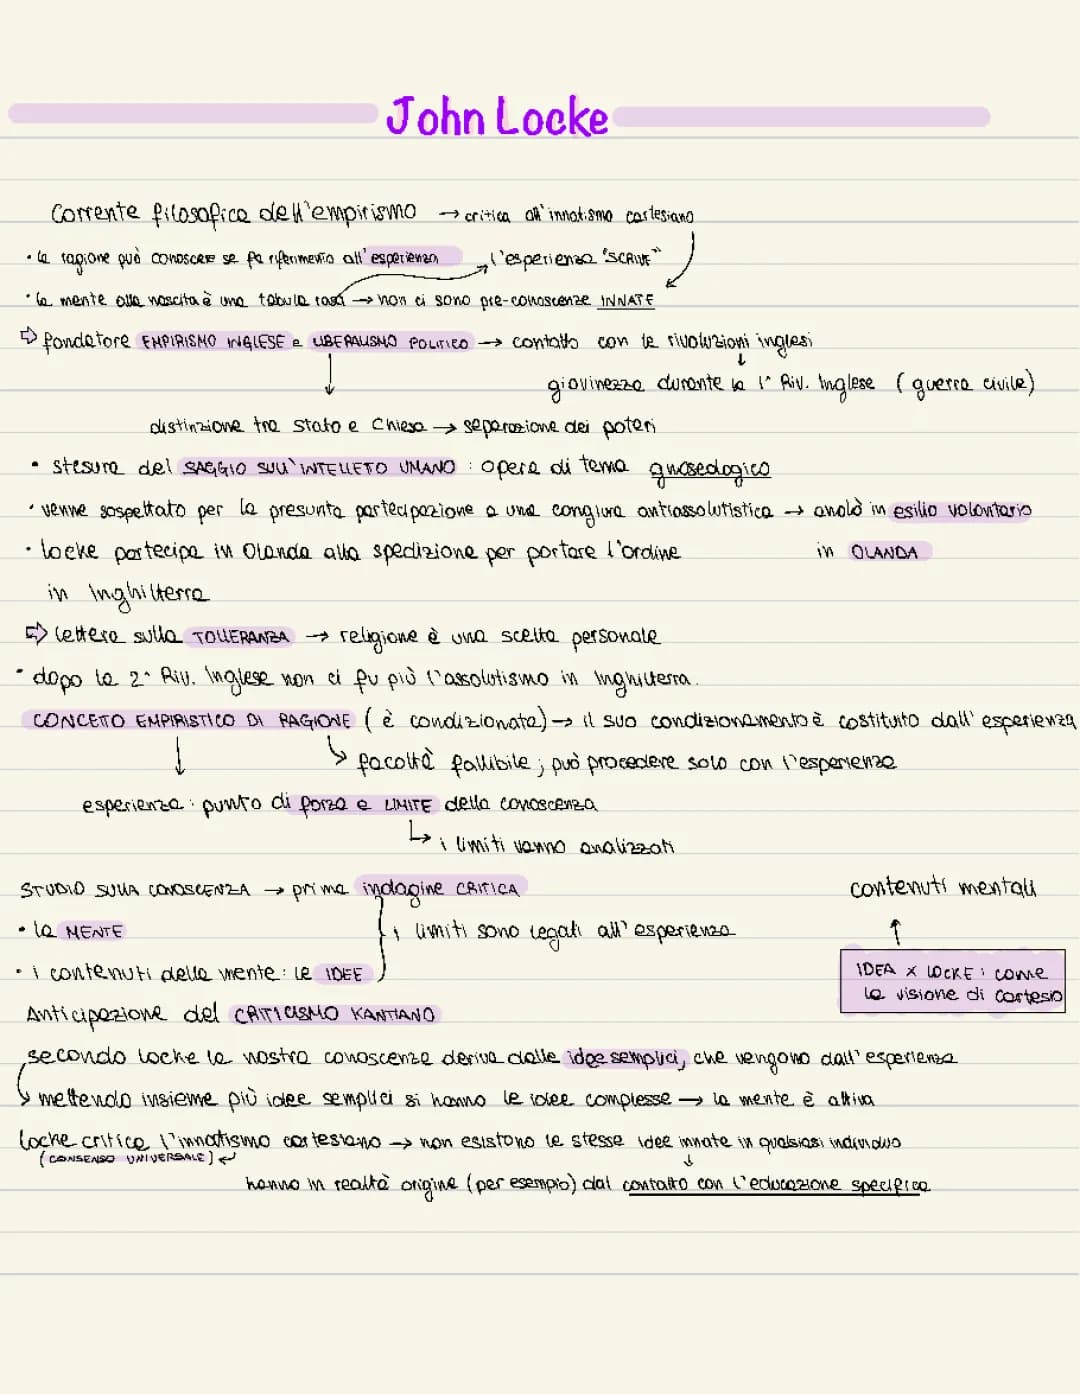 John Locke
Corrente filosofica dell'empirismo → critica all'innatismo cartesiano
• la ragione può conoscere se fa riferimento all'esperienza
l'esperienza "SCRIVE"
• la mente alla nascita è una tabula rasa → non ci sono pre-conoscenze INNATE
⇨ fondatore EMPIRISMO INGLESE e LIBERALISMO POLITICO → contatto con le rivoluzioni inglesi
↓
giovinezza durante la 1ª Riv. Inglese (guerra civile)
distinzione tra Stato e Chiesa → separazione dei poteri
• stesura del SAGGIO SULL'INTELLETO UMANO : opera di tema gnoseologico
• venne sospettato per la presunta partecipazione a una congiura antiassolutistica → andò in esilio volontario
in OLANDA
• Locke partecipa in Olanda alla spedizione per portare l'ordine
in Inghilterra
⇨ lettera sulla TOLLERANZA → religione è una scelta personale
• dopo la 2ª Riv. Inglese non ci fu più l'assolutismo in Inghilterra.
CONCETTO EMPIRISTICO DI RAGIONE (è condizionata) → il suo condizionamento è costituito dall'esperienza
↳ facoltà fallibile ; può procedere solo con l'esperienza
esperienza : punto di forza e LIMITE della conoscenza
↳ i limiti vanno analizzati
STUDIO SULLA CONOSCENZA → prima indagine CRITICA
contenuti mentali
• la MENTE
i limiti sono legati all'esperienza
↑
• i contenuti della mente: le IDEE
IDEA x LOCKE : come
la visione di Cartesio
Anticipazione del CRITICISMO KANTIANO
secondo Locke la nostra conoscenza deriva dalle idee semplici, che vengono dall'esperienza
↳ mettendo insieme più idee semplici si hanno le idee complesse → la mente è attiva
Locke critica l'innatismo cartesiano → non esistono le stesse idee innate in qualsiasi individuo
(CONSENSO UNIVERSALE) ↩
↓
hanno in realtà origine (per esempio) dal contatto con l'educazione specifica